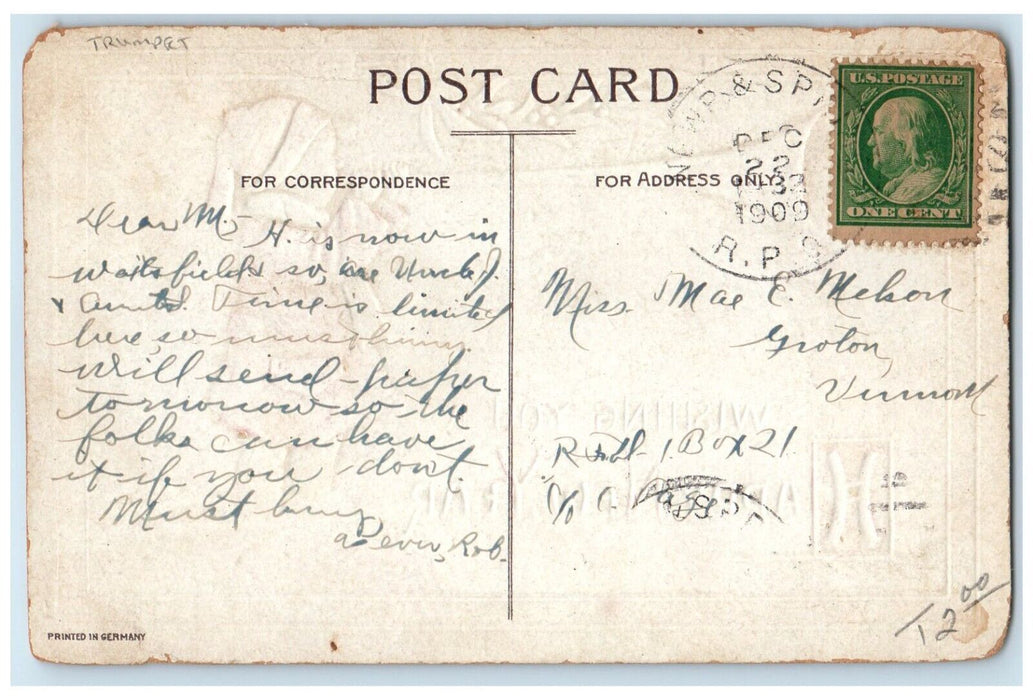 TRUMPET
POST CARD
U.S. POSTAGE
ONE CENT
NEWP. & SPR
DEC
22
1909
R.P.O.
FOR CORRESPONDENCE
FOR ADDRESS ONLY
Dear M- H. is now in
Waitsfield & so, are Uncle J.
& Aunt S. Time is limited
here, so must hurry.
Will send paper
tomorrow so the
folks can have
it if you don't.
Must hurry
as ever, Rob.
Miss. Mae E. Melson
Groton,
Vermont
R.F.D. 1, Box 21.
c/o C.
WISHING YOU
A HAPPY NEW YEAR
PRINTED IN GERMANY
12 00